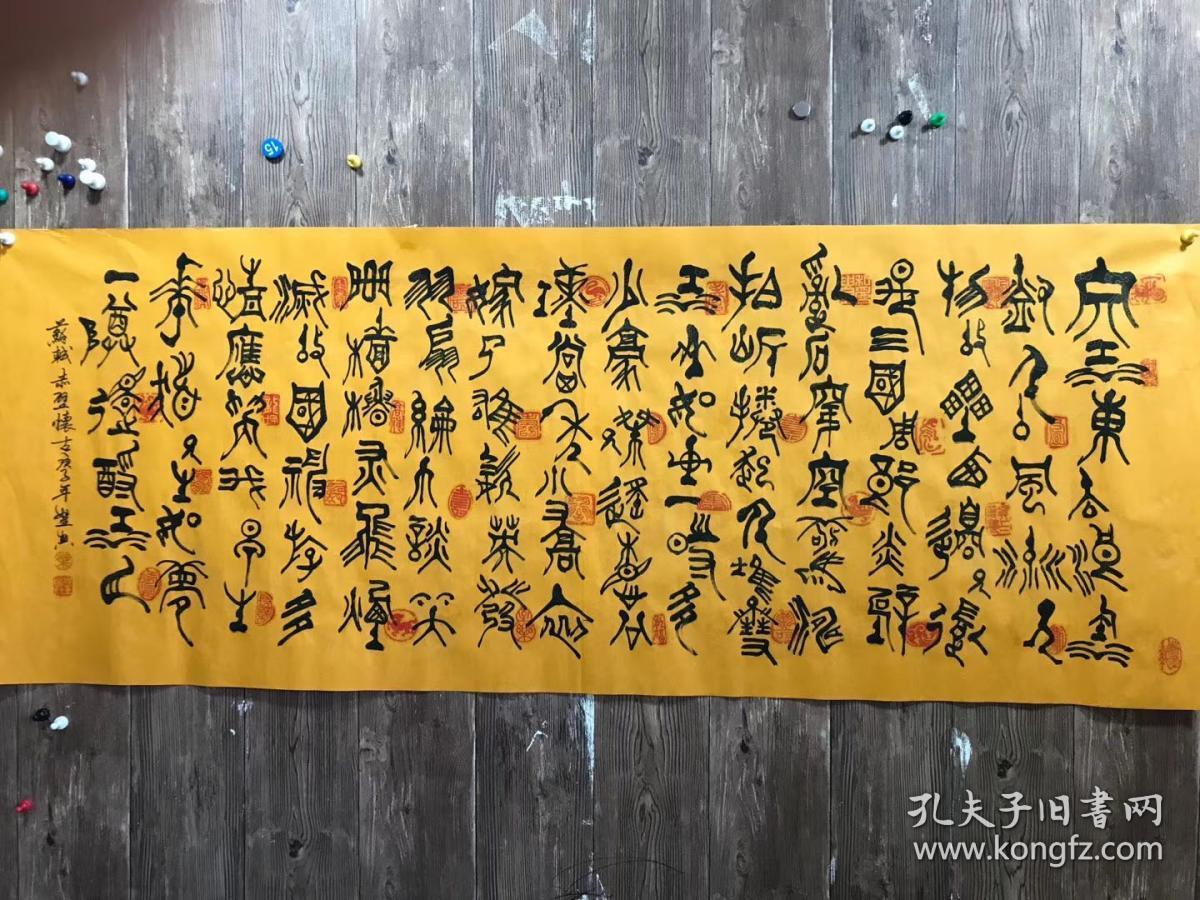 大江東去浪淘
盡千古風流人
物故壘西邊人道
是三國周郎赤壁
亂石穿空驚濤
拍岸捲起千堆雪
江山如畫一時多
少豪傑遙想公
瑾當年小喬初
嫁了雄姿英發
羽扇綸巾談笑
間檣櫓灰飛煙
滅故國神遊多
情應笑我早生
華髮人生如夢
一尊還酹江月
蘇軾赤壁懷古庚子年
15
孔夫子旧書网
www.kongfz.com